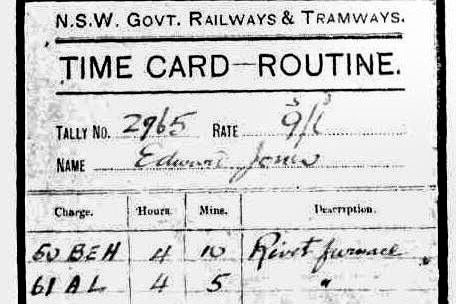 N.S.W. GOVT. RAILWAYS & TRAMWAYS.
TIME CARD—ROUTINE.
TALLY NO. 2965 RATE 9/6
NAME Edward Jones
Charge. Hours. Mins. Description.
50 BEH 4 10 Rivet furnace
61 AL 4 5 "